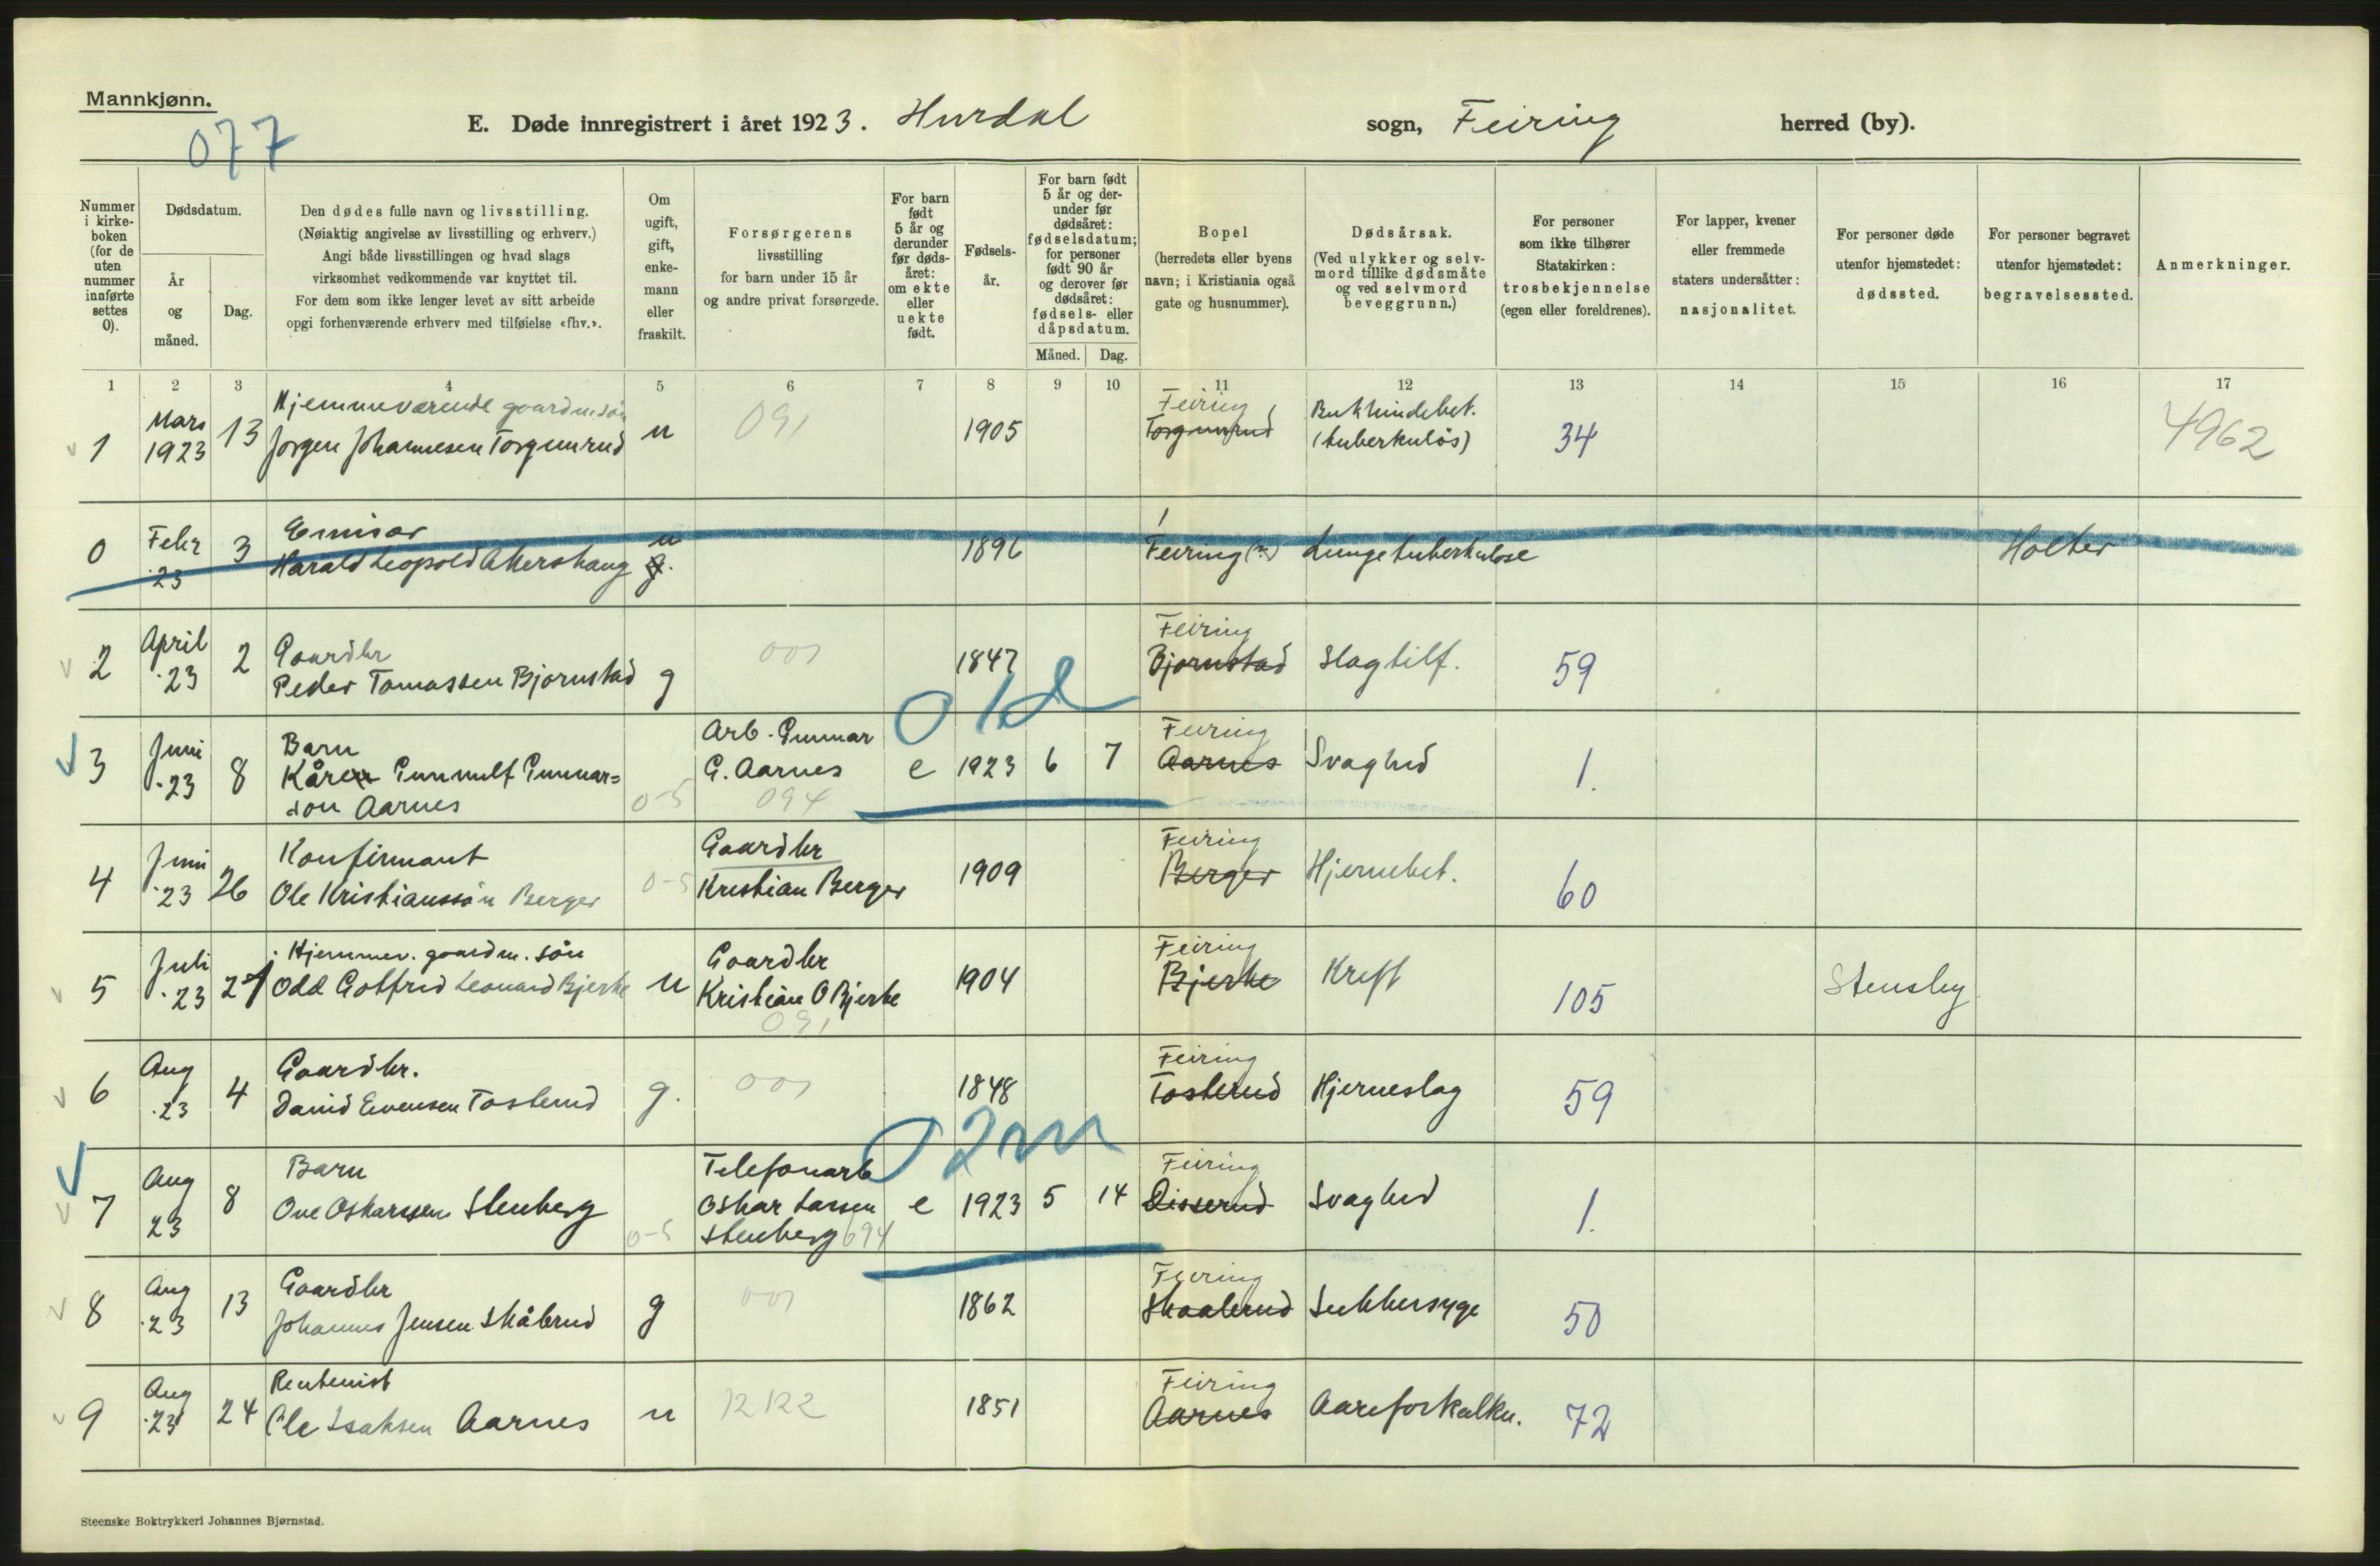 Mannkjønn.
077
E. Døde innregistrert i året 1923. Hurdal sogn, Feiring herred (by).
Nummer i kirke-boken (for de uten nummer innførte settes 0).
Dødsdatum.
År og måned.
Dag.
Den dødes fulle navn og livsstilling.
(Nøiaktig angivelse av livsstilling og erhverv.)
Angi både livsstillingen og hvad slags
virksomhet vedkommende var knyttet til.
For dem som ikke lenger levet av sitt arbeide
opgi forhenværende erhverv med tilføielse «fhv.».
Om ugift, gift, enke-mann eller fraskilt.
Forsørgerens
livsstilling
for barn under 15 år
og andre privat forsørgede.
For barn født 5 år og derunder før døds-året: om ekte eller uekte født.
Fødsels-år.
For barn født 5 år og der-under før dødsåret: fødselsdatum; for personer født 90 år og derover før dødsåret: fødsels- eller dåpsdatum.
Måned. Dag.
Bopel
(herredets eller byens
navn; i Kristiania også
gate og husnummer).
Dødsårsak.
(Ved ulykker og selv-
mord tillike dødsmåte
og ved selvmord
beveggrunn.)
For personer
som ikke tilhører
Statskirken:
trosbekjennelse
(egen eller foreldrenes).
For lapper, kvener
eller fremmede
staters undersåtter:
nasjonalitet.
For personer døde
utenfor hjemstedet:
dødssted.
For personer begravet
utenfor hjemstedet:
begravelsessted.
Anmerkninger.
1 2 3 4 5 6 7 8 9 10 11 12 13 14 15 16 17
Hjemmeværende gaardm.søn Feiring Bukhindebet.
1 Mars 1923 13 Jørgen Johannesen Torgunrud u 091 1905 Torgunrud (tuberkuløs) 34 4962
Emisær
0 Febr 23 3 Harald Leopold Akershaug u g. 1896 Feiring (?) Lungetuberkulose Holter
Gaardbr Feiring
2 April 23 2 Peder Tomassen Bjørnstad g 001 1847 Bjørnstad Slagtilf. 59
01d
Barn Arb. Gunnar Feiring
3 Juni 23 8 Kåre Gunnulf Gunnar= G. Aarnes e 1923 6 7 Aarnes Svaghed 1.
søn Aarnes 0-5 094
Konfirmant Gaardbr Feiring
4 Juni 23 26 Ole Kristianssøn Berger 0-5 Kristian Berger 1909 Berger Hjernebet. 60
Hjemmev. gaardm. søn Gaardbr Feiring
5 Juli 23 27 Odd Gotfred Leonard Bjerke u Kristian O Bjerke 1904 Bjerke Kreft 105 Stensby
091
Gaardbr. Feiring
6 Aug 23 4 David Evensen Tosterud g. 001 1848 Tosterud Hjerneslag 59
02m
Barn Telefonarb Feiring
7 Aug 23 8 Ove Oskarssen Stenberg Oskar Larsen e 1923 5 14 Disserud Svaghed 1.
0-5 Stenberg 094
Gaardbr Feiring
8 Aug 23 13 Johannes Jensen Skålerud g 001 1862 Skaalerud Sukkersyge 50
Rentenist Feiring
9 Aug 23 24 Ole Isaksen Aarnes u 12122 1851 Aarnes Aareforkalkn. 72
Steenske Boktrykkeri Johannes Bjørnstad.